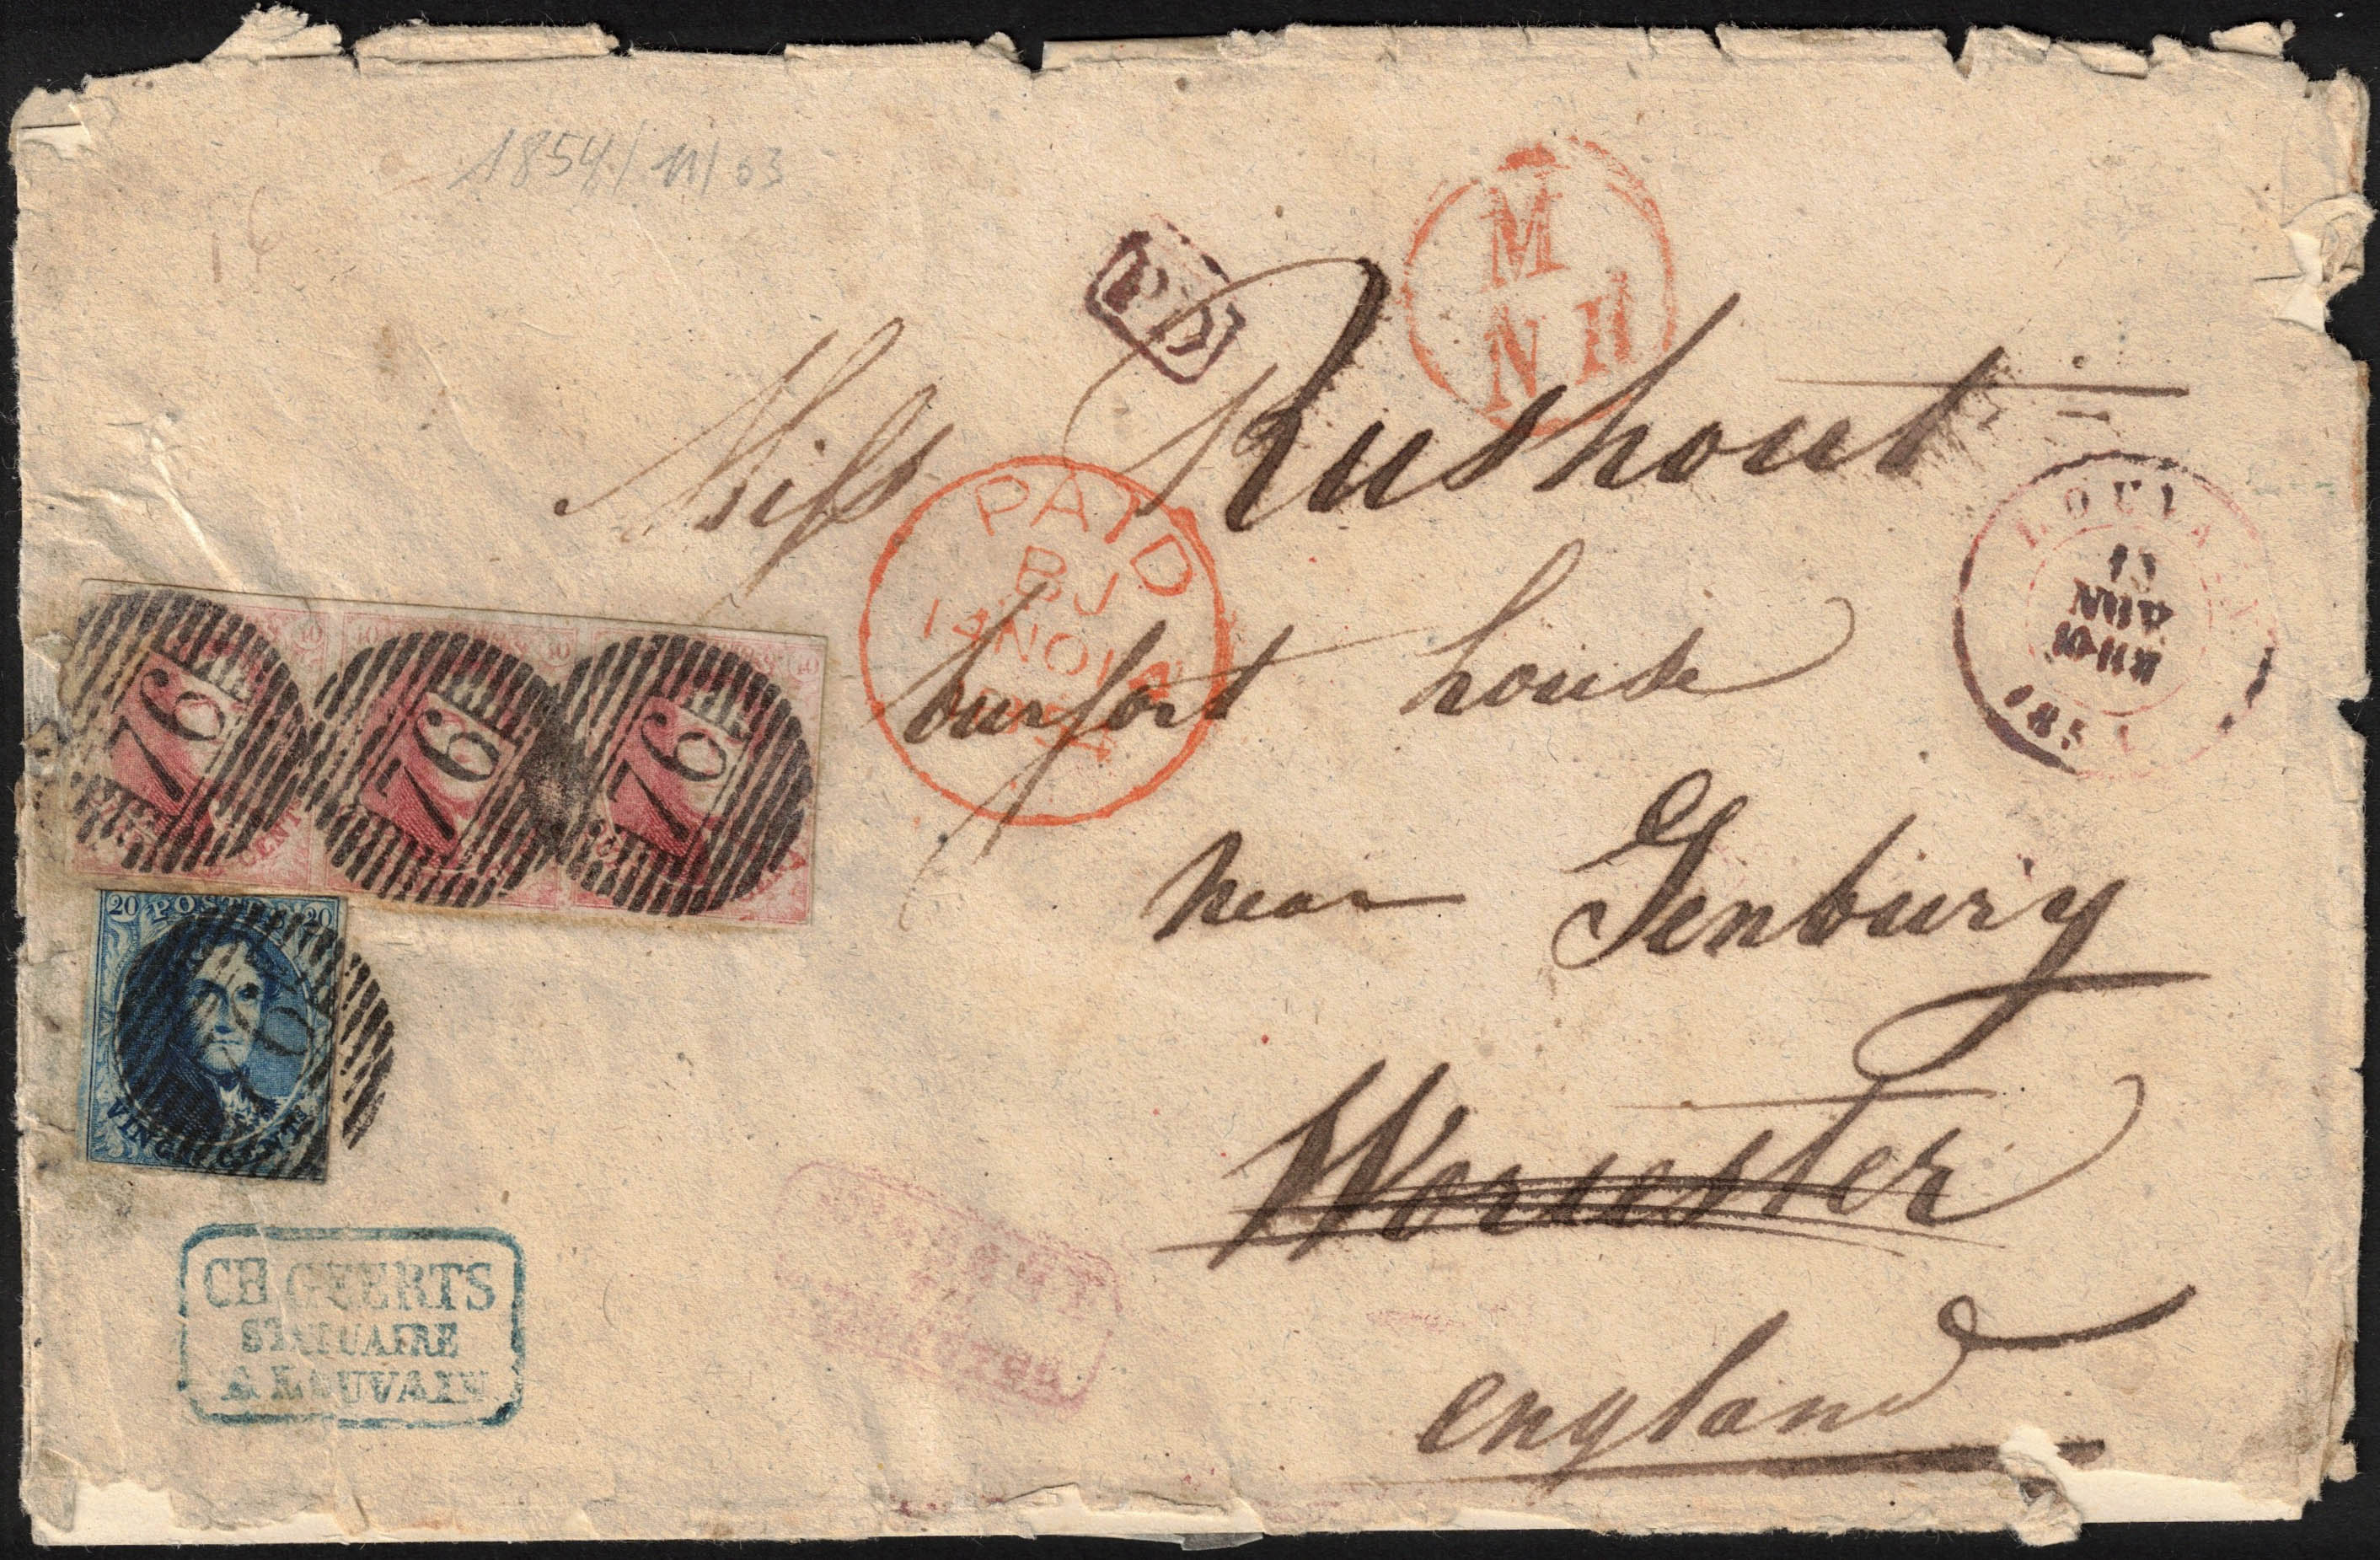 1854/11/03
PD
M
NH
Miss Rushout
PAID
BJ
14NO14
1854
LOUVAIN
13
NOV
185
burfort house
near Tenbury
Worcester
england
76
76
76
10
10
10
CENT
20 POSTES 20
VINGT CENTS
CH GEERTS
STATUAIRE
A LOUVAIN